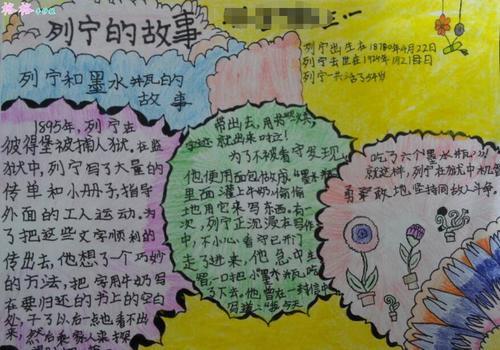 列宁的故事
列宁和墨水瓶的
故事
列宁出生在1870年4月22日
列宁去世在1924年1月21日
列宁一共活了54岁
1895年,列宁在
彼得堡被捕入狱。在监
狱中,列宁写了大量的
传单和小册子,指导
外面的工人运动。为
了把这些文字顺利的
传出去,他想了个巧妙
的方法,把字用牛奶写
在要归还的书上的空白
处,干了以后一点也看不出
来,然后
带出去,用
字迹就出来时立!
为了不被看守发现,
他使用面包做成"墨水瓶"
里面灌上牛奶,偷偷
地用它来写东西。有一
次,列宁正沉浸在写作
中,不小心,看守已开门
走了进来,他急中生
智,一口把小墨水瓶吃
了下去。他曾在一封信中
写道:"
吃了六个墨水瓶
就这样,列宁在狱中机智
勇敢地坚持同敌人斗争。